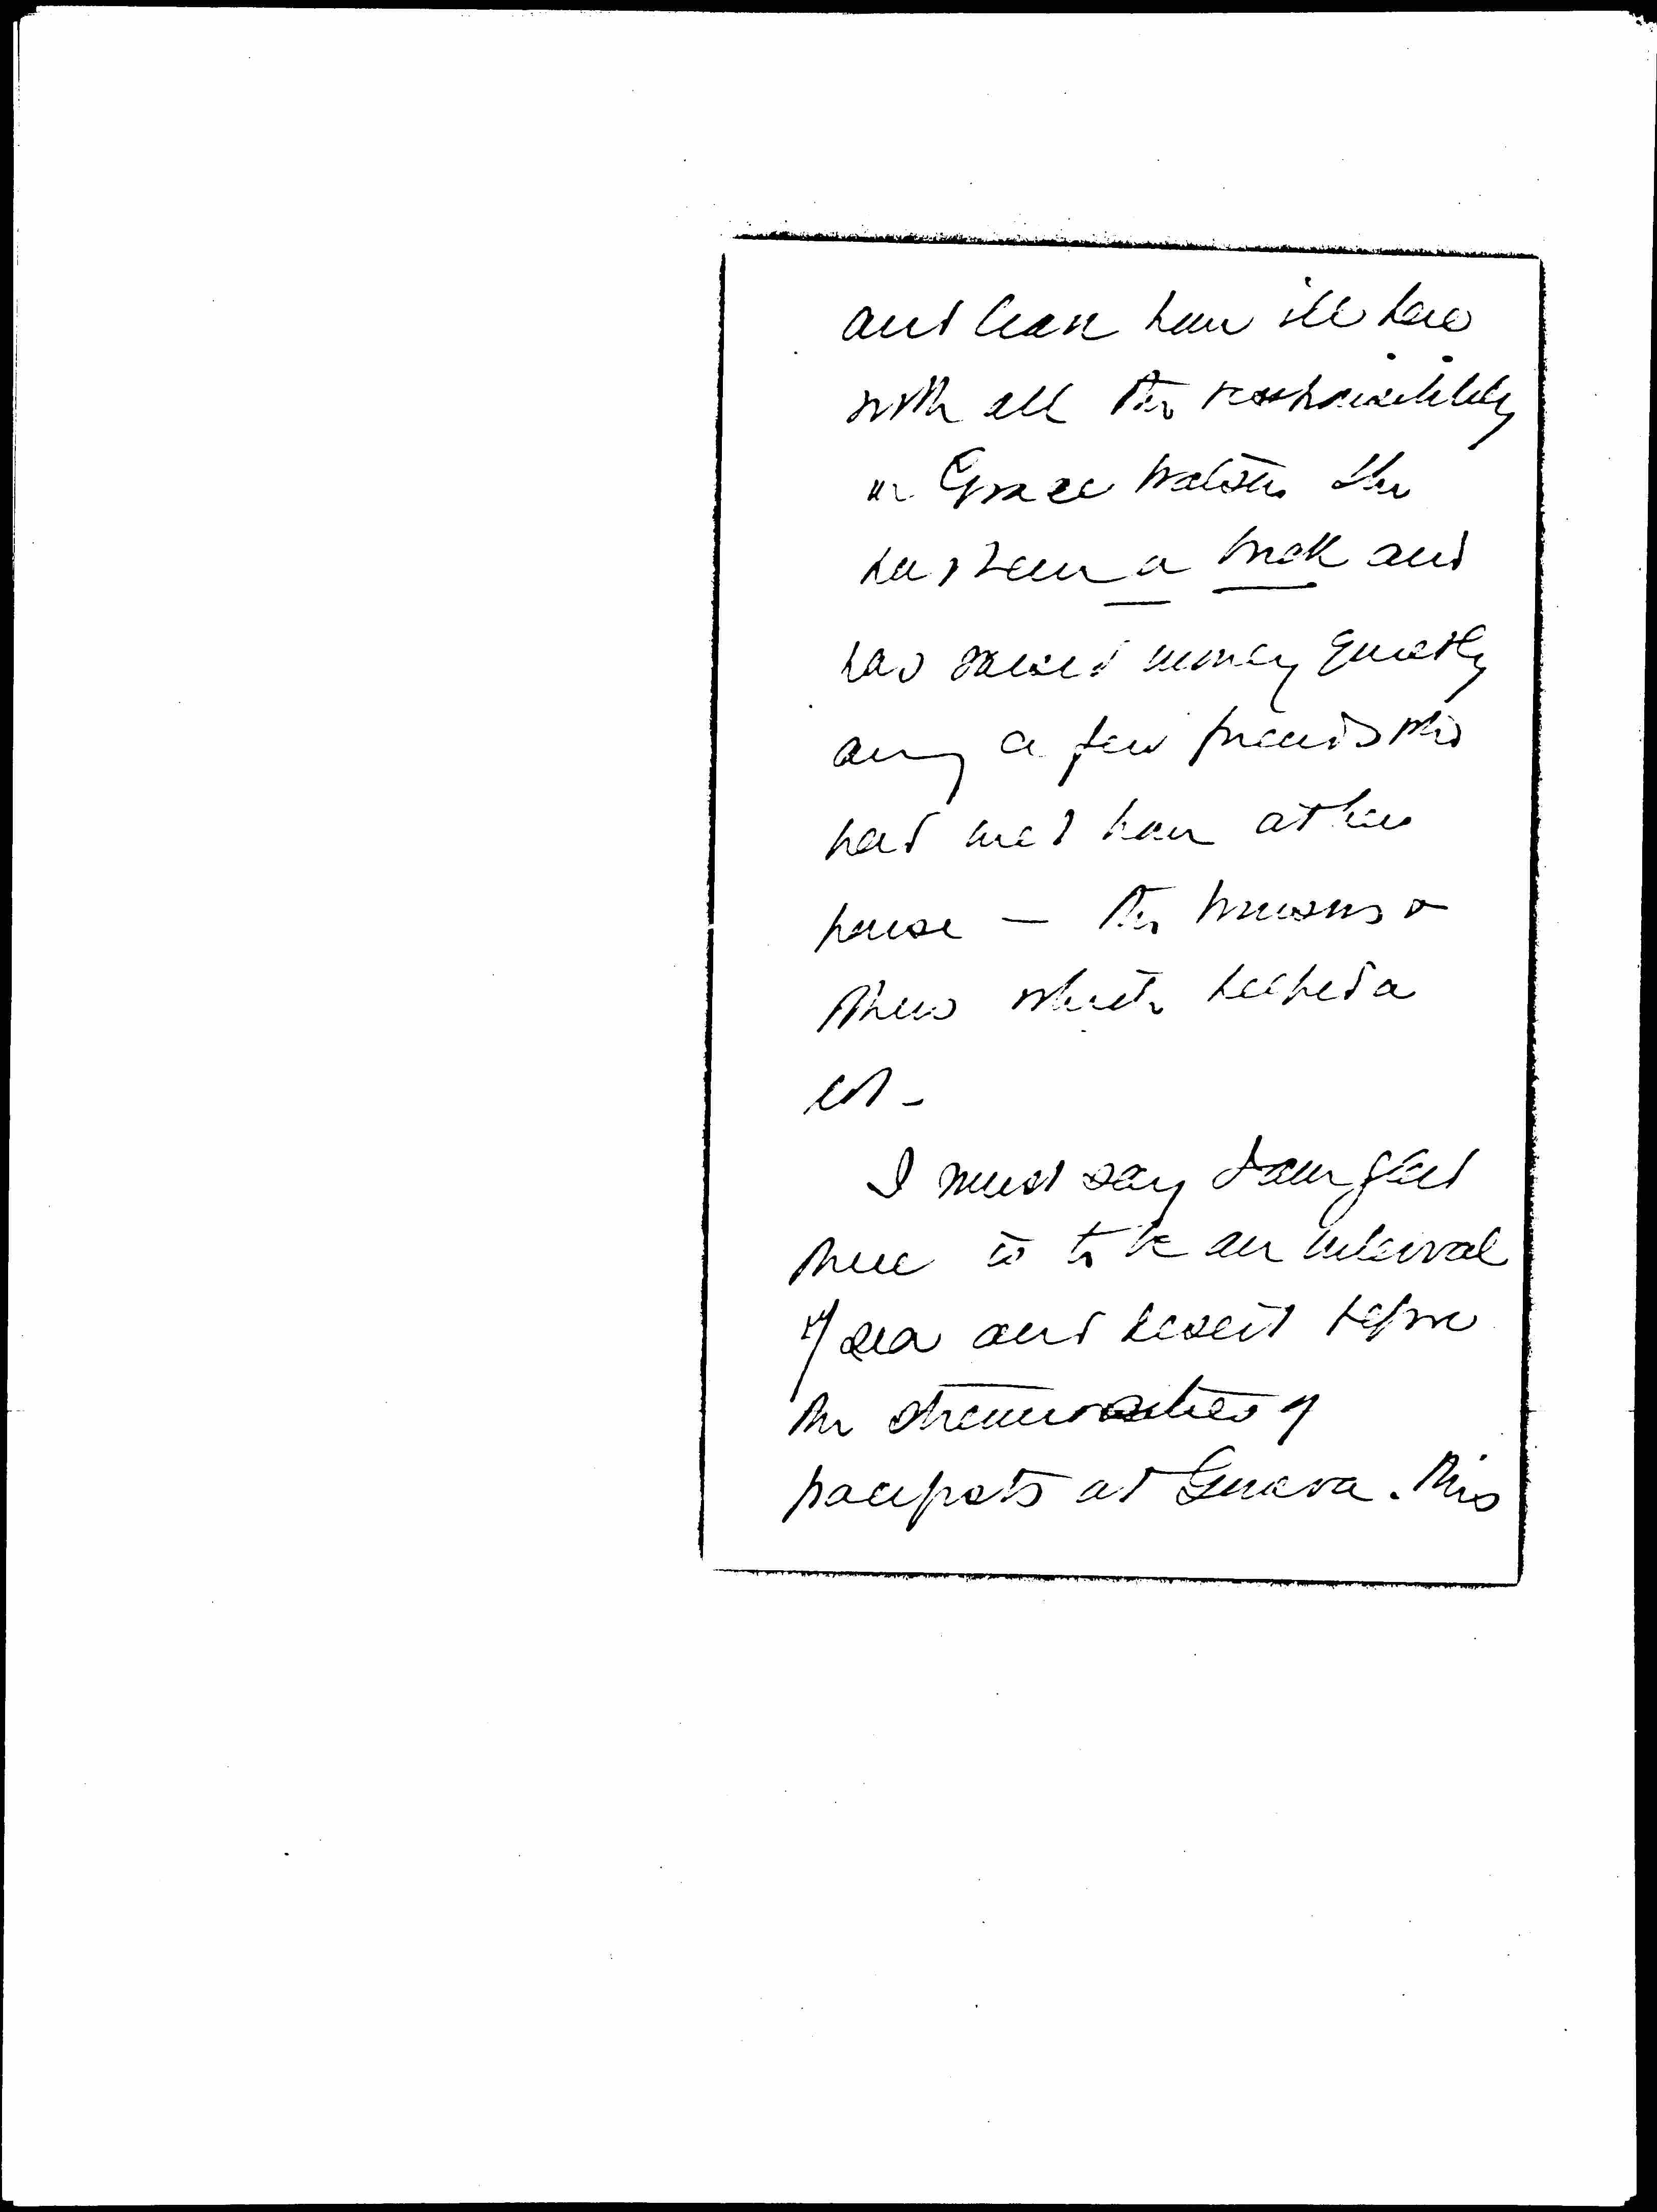 and leave him ill here
with all the responsibility
on Grace she
has been a brick and
has raised money quietly
among a few friends who
had met him at her
house — the &
Thews which helped a
lot –
I must say I am glad
there is to be an interval
of sea and desert before
the strenuosities of
at Geneva. This